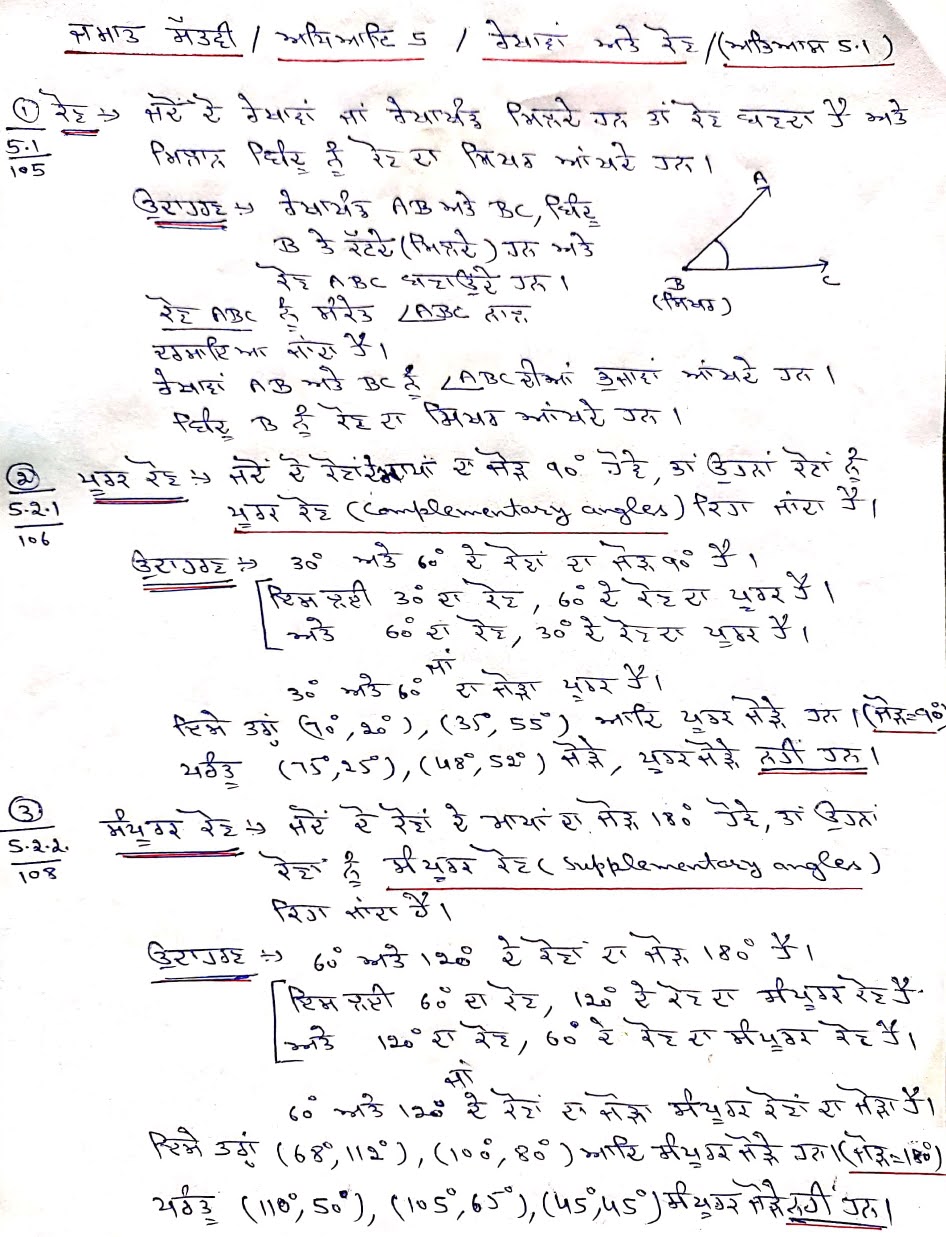 ਜਮਾਤ ਸੱਤਵੀਂ / ਅਧਿਆਇ 5 / ਰੇਖਾਵਾਂ ਅਤੇ ਕੋਣ / (ਅਭਿਆਸ 5.1)
① ਕੋਣ → ਜਦੋਂ ਦੋ ਰੇਖਾਵਾਂ ਜਾਂ ਰੇਖਾਖੰਡ ਮਿਲਦੇ ਹਨ ਤਾਂ ਕੋਣ ਬਣਦਾ ਹੈ ਅਤੇ
5.1
105
ਮਿਲਾਨ ਬਿੰਦੂ ਨੂੰ ਕੋਣ ਦਾ ਸਿਖਰ ਆਂਖਦੇ ਹਨ।
ਉਦਾਹਰਣ → ਰੇਖਾਖੰਡ AB ਅਤੇ BC, ਬਿੰਦੂ
B ਤੇ ਕੱਟਦੇ (ਮਿਲਦੇ) ਹਨ ਅਤੇ
ਕੋਣ ABC ਬਣਾਉਂਦੇ ਹਨ।
ਕੋਣ ABC ਨੂੰ ਸੰਕੇਤ ∠ABC ਨਾਲ
ਦਰਸਾਇਆ ਜਾਂਦਾ ਹੈ।
A
B
C
(ਸਿਖਰ)
ਰੇਖਾਵਾਂ AB ਅਤੇ BC ਨੂੰ ∠ABC ਦੀਆਂ ਭੁਜਾਵਾਂ ਆਂਖਦੇ ਹਨ।
ਬਿੰਦੂ B ਨੂੰ ਕੋਣ ਦਾ ਸਿਖਰ ਆਂਖਦੇ ਹਨ।
② ਪੂਰਕ ਕੋਣ → ਜਦੋਂ ਦੋ ਕੋਣਾਂ ਦੇ ਮਾਪਾਂ ਦਾ ਜੋੜ 90° ਹੋਵੇ, ਤਾਂ ਉਹਨਾਂ ਕੋਣਾਂ ਨੂੰ
5.2.1
106
ਪੂਰਕ ਕੋਣ (Complementary angles) ਕਿਹਾ ਜਾਂਦਾ ਹੈ।
ਉਦਾਹਰਣ → 30° ਅਤੇ 60° ਦੇ ਕੋਣਾਂ ਦਾ ਜੋੜ 90° ਹੈ।
ਇਸ ਲਈ 30° ਦਾ ਕੋਣ, 60° ਦੇ ਕੋਣ ਦਾ ਪੂਰਕ ਹੈ।
ਅਤੇ 60° ਦਾ ਕੋਣ, 30° ਦੇ ਕੋਣ ਦਾ ਪੂਰਕ ਹੈ।
ਜਾਂ
30° ਅਤੇ 60° ਦਾ ਜੋੜਾ ਪੂਰਕ ਹੈ।
ਇਸੇ ਤਰ੍ਹਾਂ (70°, 20°), (35°, 55°) ਆਦਿ ਪੂਰਕ ਜੋੜੇ ਹਨ। (ਜੋੜ=90°)
ਪਰੰਤੂ (75°, 25°), (48°, 52°) ਜੋੜੇ, ਪੂਰਕ ਜੋੜੇ ਨਹੀਂ ਹਨ।
③ ਸੰਪੂਰਕ ਕੋਣ → ਜਦੋਂ ਦੋ ਕੋਣਾਂ ਦੇ ਮਾਪਾਂ ਦਾ ਜੋੜ 180° ਹੋਵੇ, ਤਾਂ ਉਹਨਾਂ
5.2.2.
108
ਕੋਣਾਂ ਨੂੰ ਸੰਪੂਰਕ ਕੋਣ (Supplementary angles)
ਕਿਹਾ ਜਾਂਦਾ ਹੈ।
ਉਦਾਹਰਣ → 60° ਅਤੇ 120° ਦੇ ਕੋਣਾਂ ਦਾ ਜੋੜ 180° ਹੈ।
ਇਸ ਲਈ 60° ਦਾ ਕੋਣ, 120° ਦੇ ਕੋਣ ਦਾ ਸੰਪੂਰਕ ਕੋਣ ਹੈ।
ਅਤੇ 120° ਦਾ ਕੋਣ, 60° ਦੇ ਕੋਣ ਦਾ ਸੰਪੂਰਕ ਕੋਣ ਹੈ।
ਜਾਂ
60° ਅਤੇ 120° ਦੇ ਕੋਣਾਂ ਦਾ ਜੋੜਾ ਸੰਪੂਰਕ ਕੋਣਾਂ ਦਾ ਜੋੜਾ ਹੈ।
ਇਸੇ ਤਰ੍ਹਾਂ (68°, 112°), (100°, 80°) ਆਦਿ ਸੰਪੂਰਕ ਜੋੜੇ ਹਨ। (ਜੋੜ=180°)
ਪਰੰਤੂ (110°, 50°), (105°, 65°), (45°, 45°) ਸੰਪੂਰਕ ਜੋੜੇ ਨਹੀਂ ਹਨ।